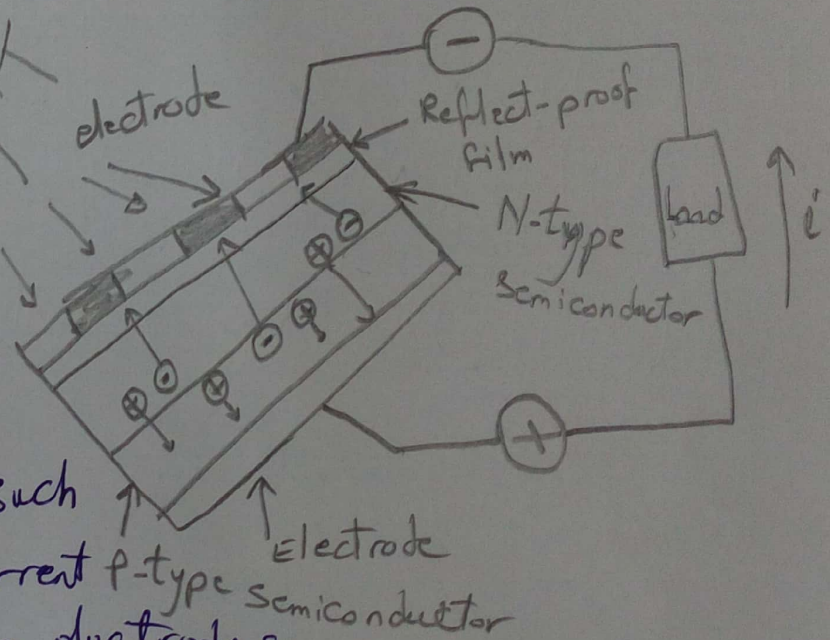 electrode
Reflect-proof
film
N-type
semiconductor
Load
i
−
+
such
Electrode
P-type semiconductor